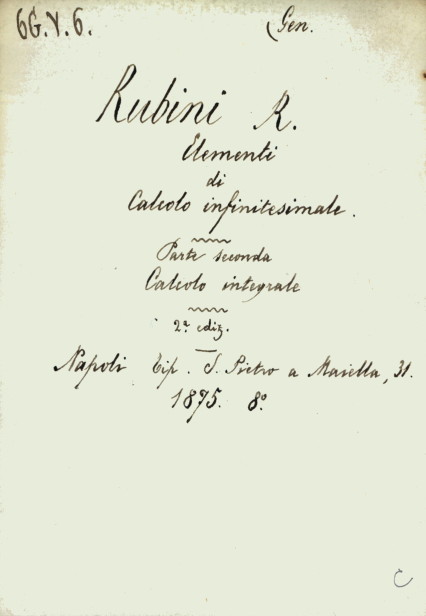 6G.V.6. (Gen.
Rubini R.
Elementi
di
Calcolo infinitesimale.
Parte seconda
Calcolo integrale
2ª ediz.
Napoli Tip. S. Pietro a Maiella, 31.
1875. 8º
C